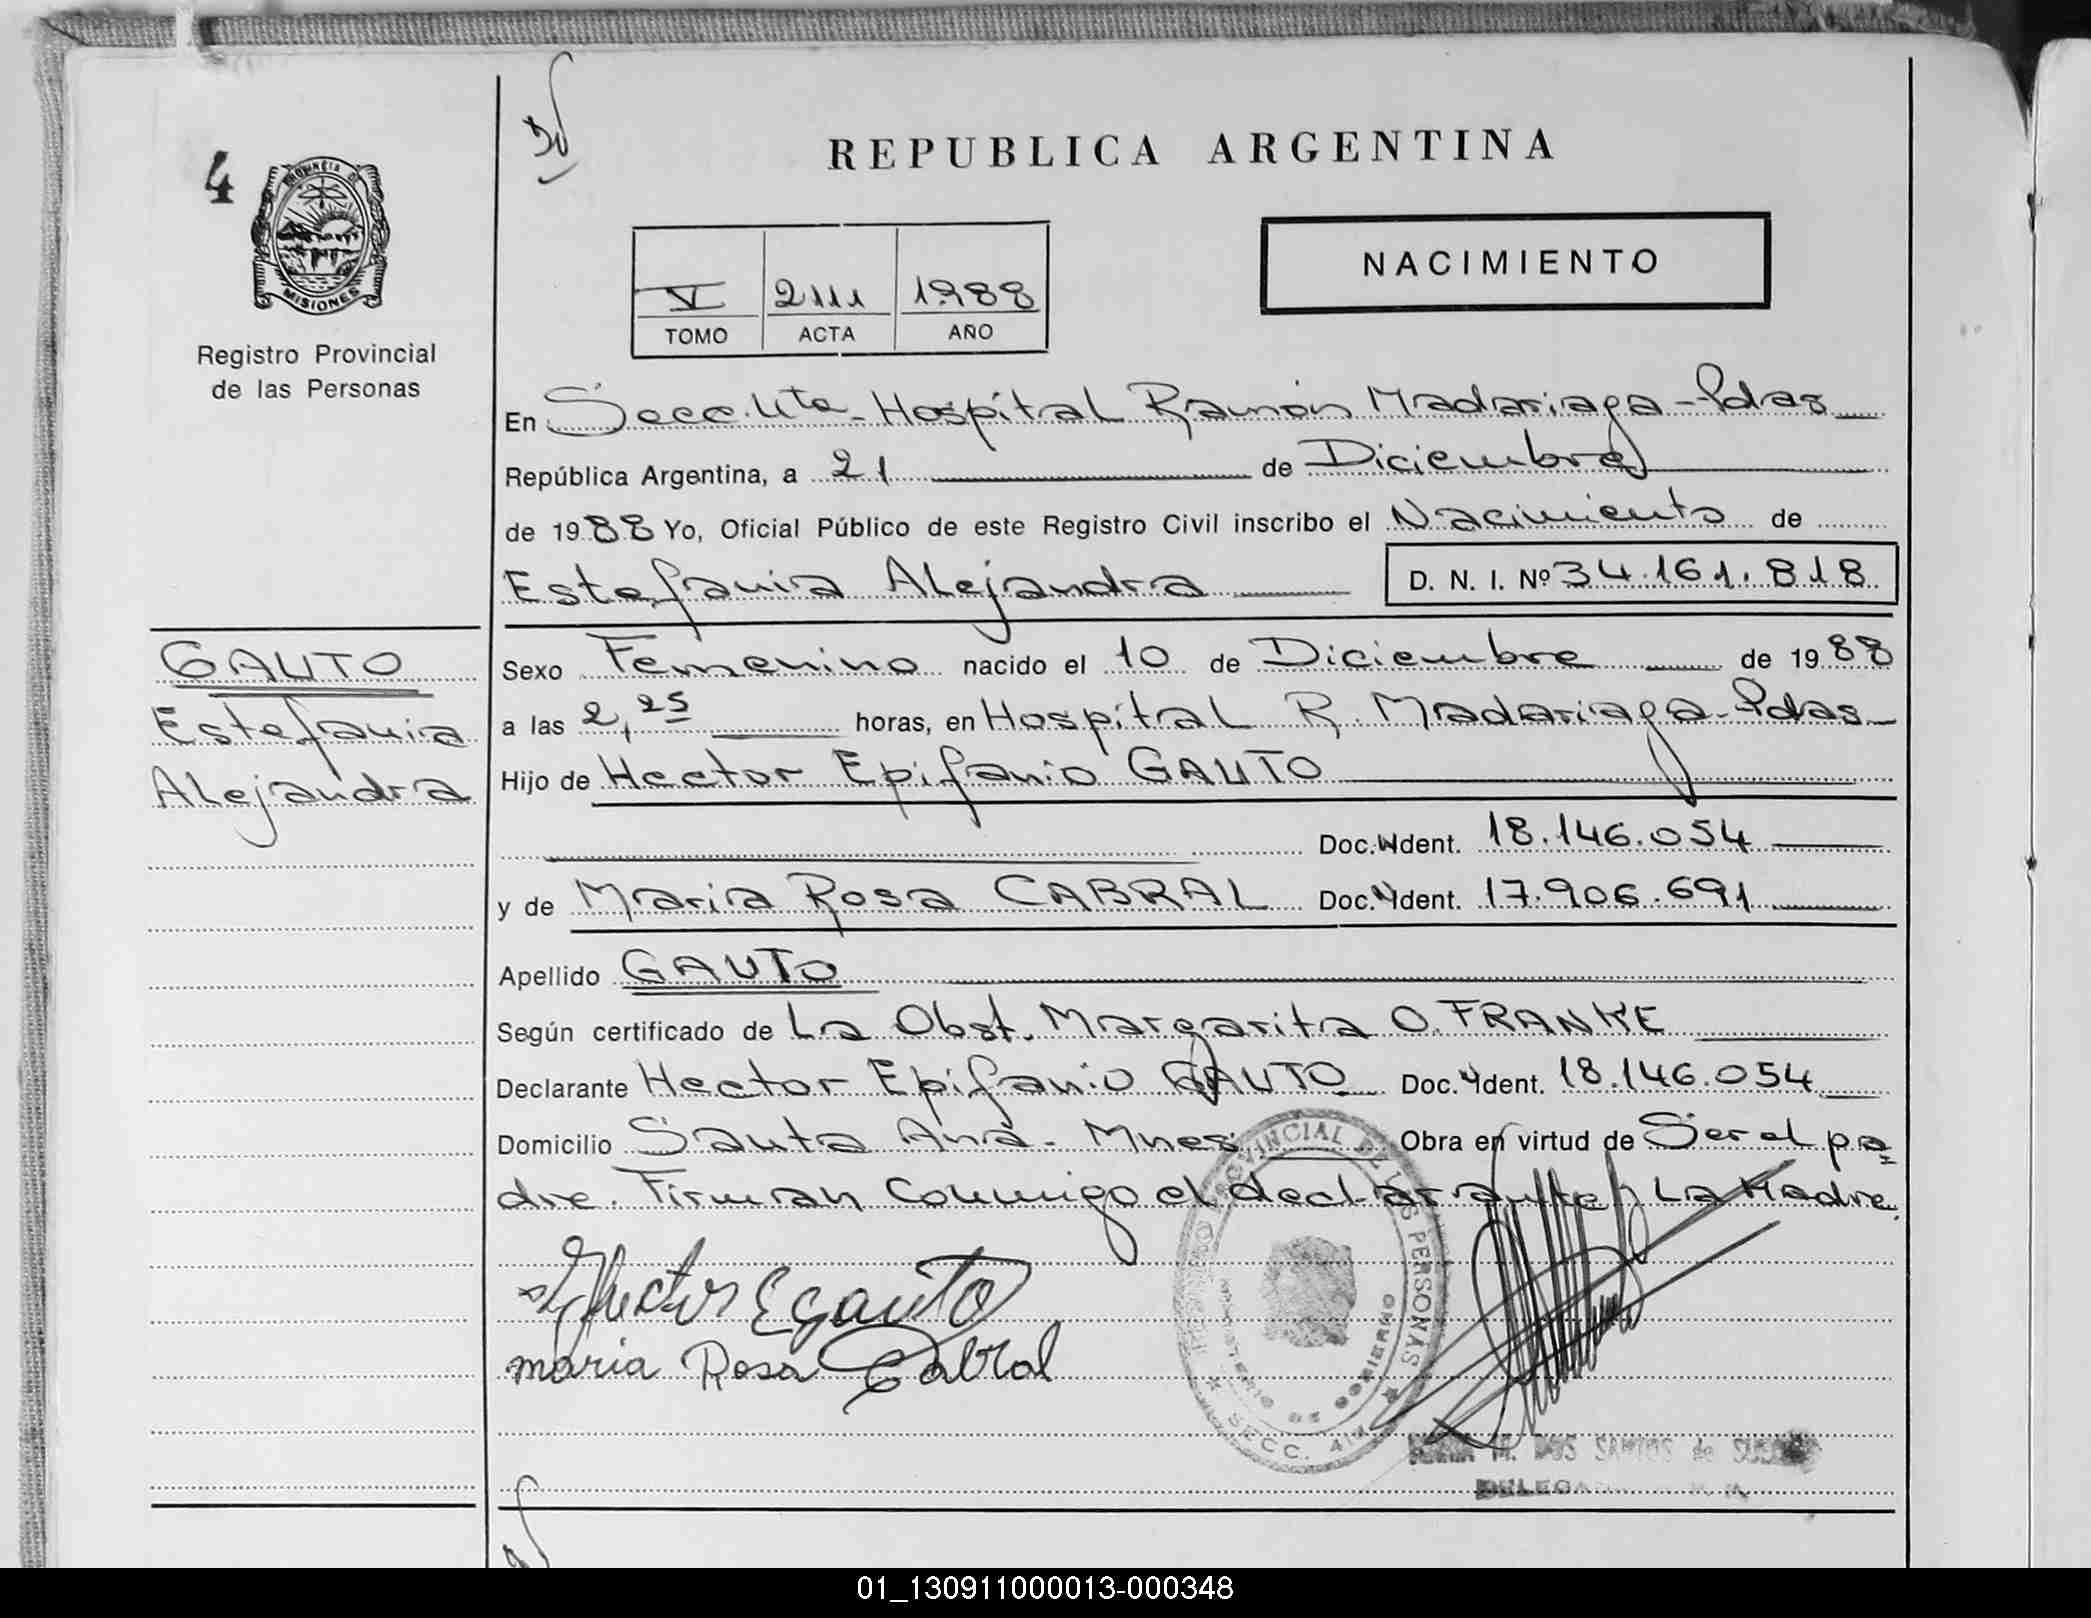 4
PROVINCIA DE
MISIONES
Registro Provincial
de las Personas
REPUBLICA ARGENTINA
V 2111 1988
TOMO ACTA AÑO
NACIMIENTO
En Secc. 4ta - Hospital Ramón Madariaga - Pdas
República Argentina, a 21 de Diciembre
de 1988 Yo, Oficial Público de este Registro Civil inscribo el Nacimiento de
Estefania Alejandra D. N. I. Nº 34.161.818
GAUTO
Estefania
Alejandra
Sexo Femenino nacido el 10 de Diciembre de 1988
a las 2,25 horas, en Hospital R. Madariaga - Pdas
Hijo de Hector Epifanio GAUTO
Doc. Ident. 18.146.054
y de Maria Rosa CABRAL Doc. Ident. 17.906.691
Apellido GAUTO
Según certificado de La Obst. Margarita O. FRANKE
Declarante Hector Epifanio GAUTO Doc. Ident. 18.146.054
Domicilio Santa Ana - Mnes Obra en virtud de Ser el pa=
dre. Firman Conmigo el declarante y La Madre.
Hector E gauto
maria Rosa Cabral
REGISTRO PROVINCIAL DE LAS PERSONAS
MINISTERIO DE GOBIERNO
SECC. 4ta
M. DOS SANTOS de
01_130911000013-000348